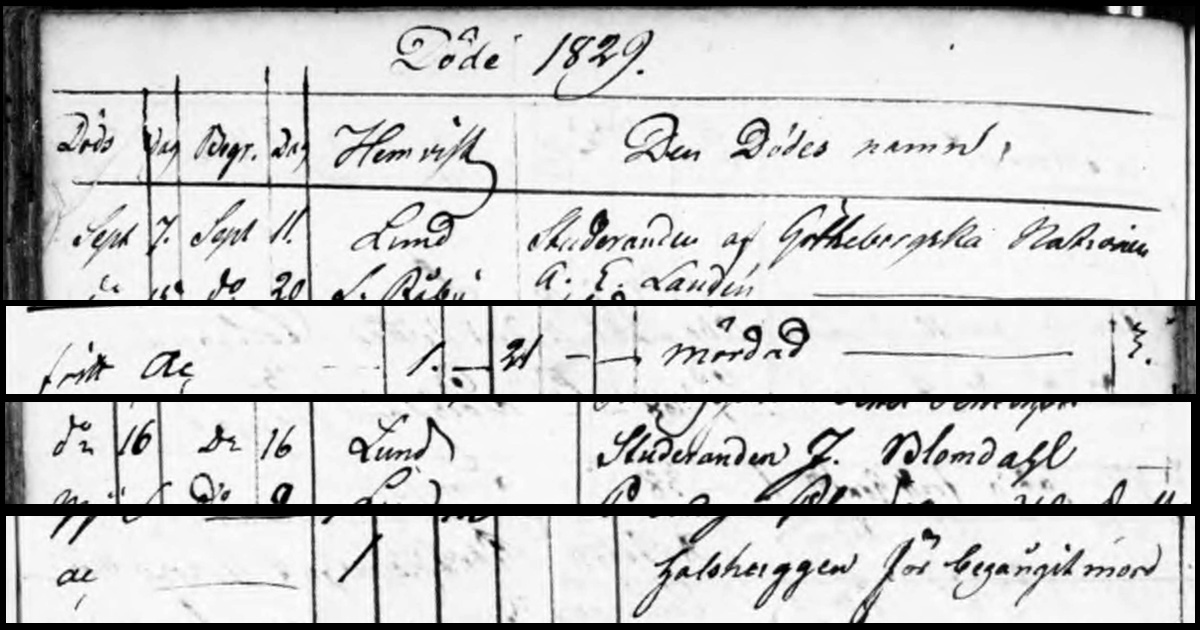 Döde 1829.
Döds Dag Begr. Dag Hemvist Den Dödes namn,
Sept 7. Sept 11. Lund Studeranden af Götheborgska Nationen
do 20 S. Råby A. E. Landin
fritt ac 1. — 21 — — mördad — 3.
do 16 do 16 Lund Studeranden J. Blomdahl
ac — 1 halshuggen för begångit mord